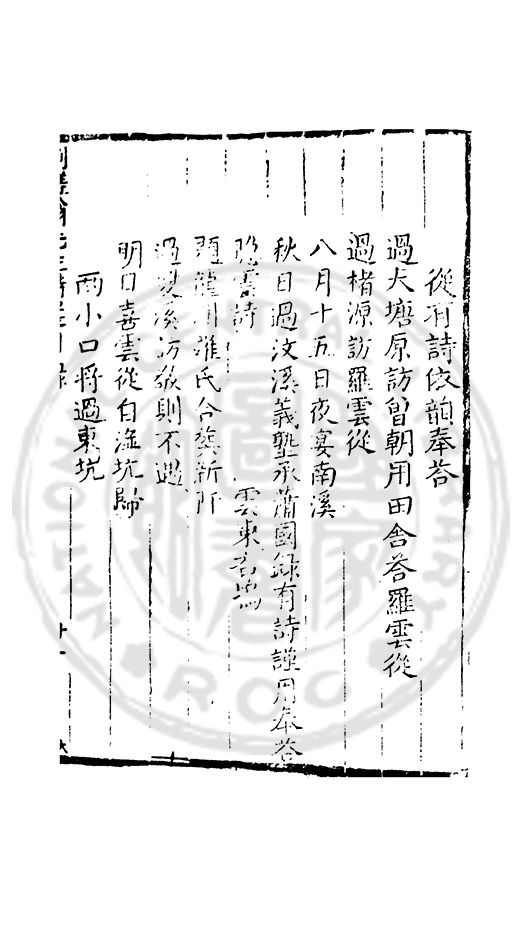 從有詩依韻奉荅
過大塘原訪曾朝用田舍荅羅雲從
過楮源訪羅雲從
八月十五日夜宴南溪
秋日過汶溪義塾承蕭國録有詩謹用奉荅
晚雲詩 雲東
題龍川羅氏合族新阡
過雙溪訪敬則不遇
明日喜雲從自漟坑歸
雨小口將過東坑
廿一